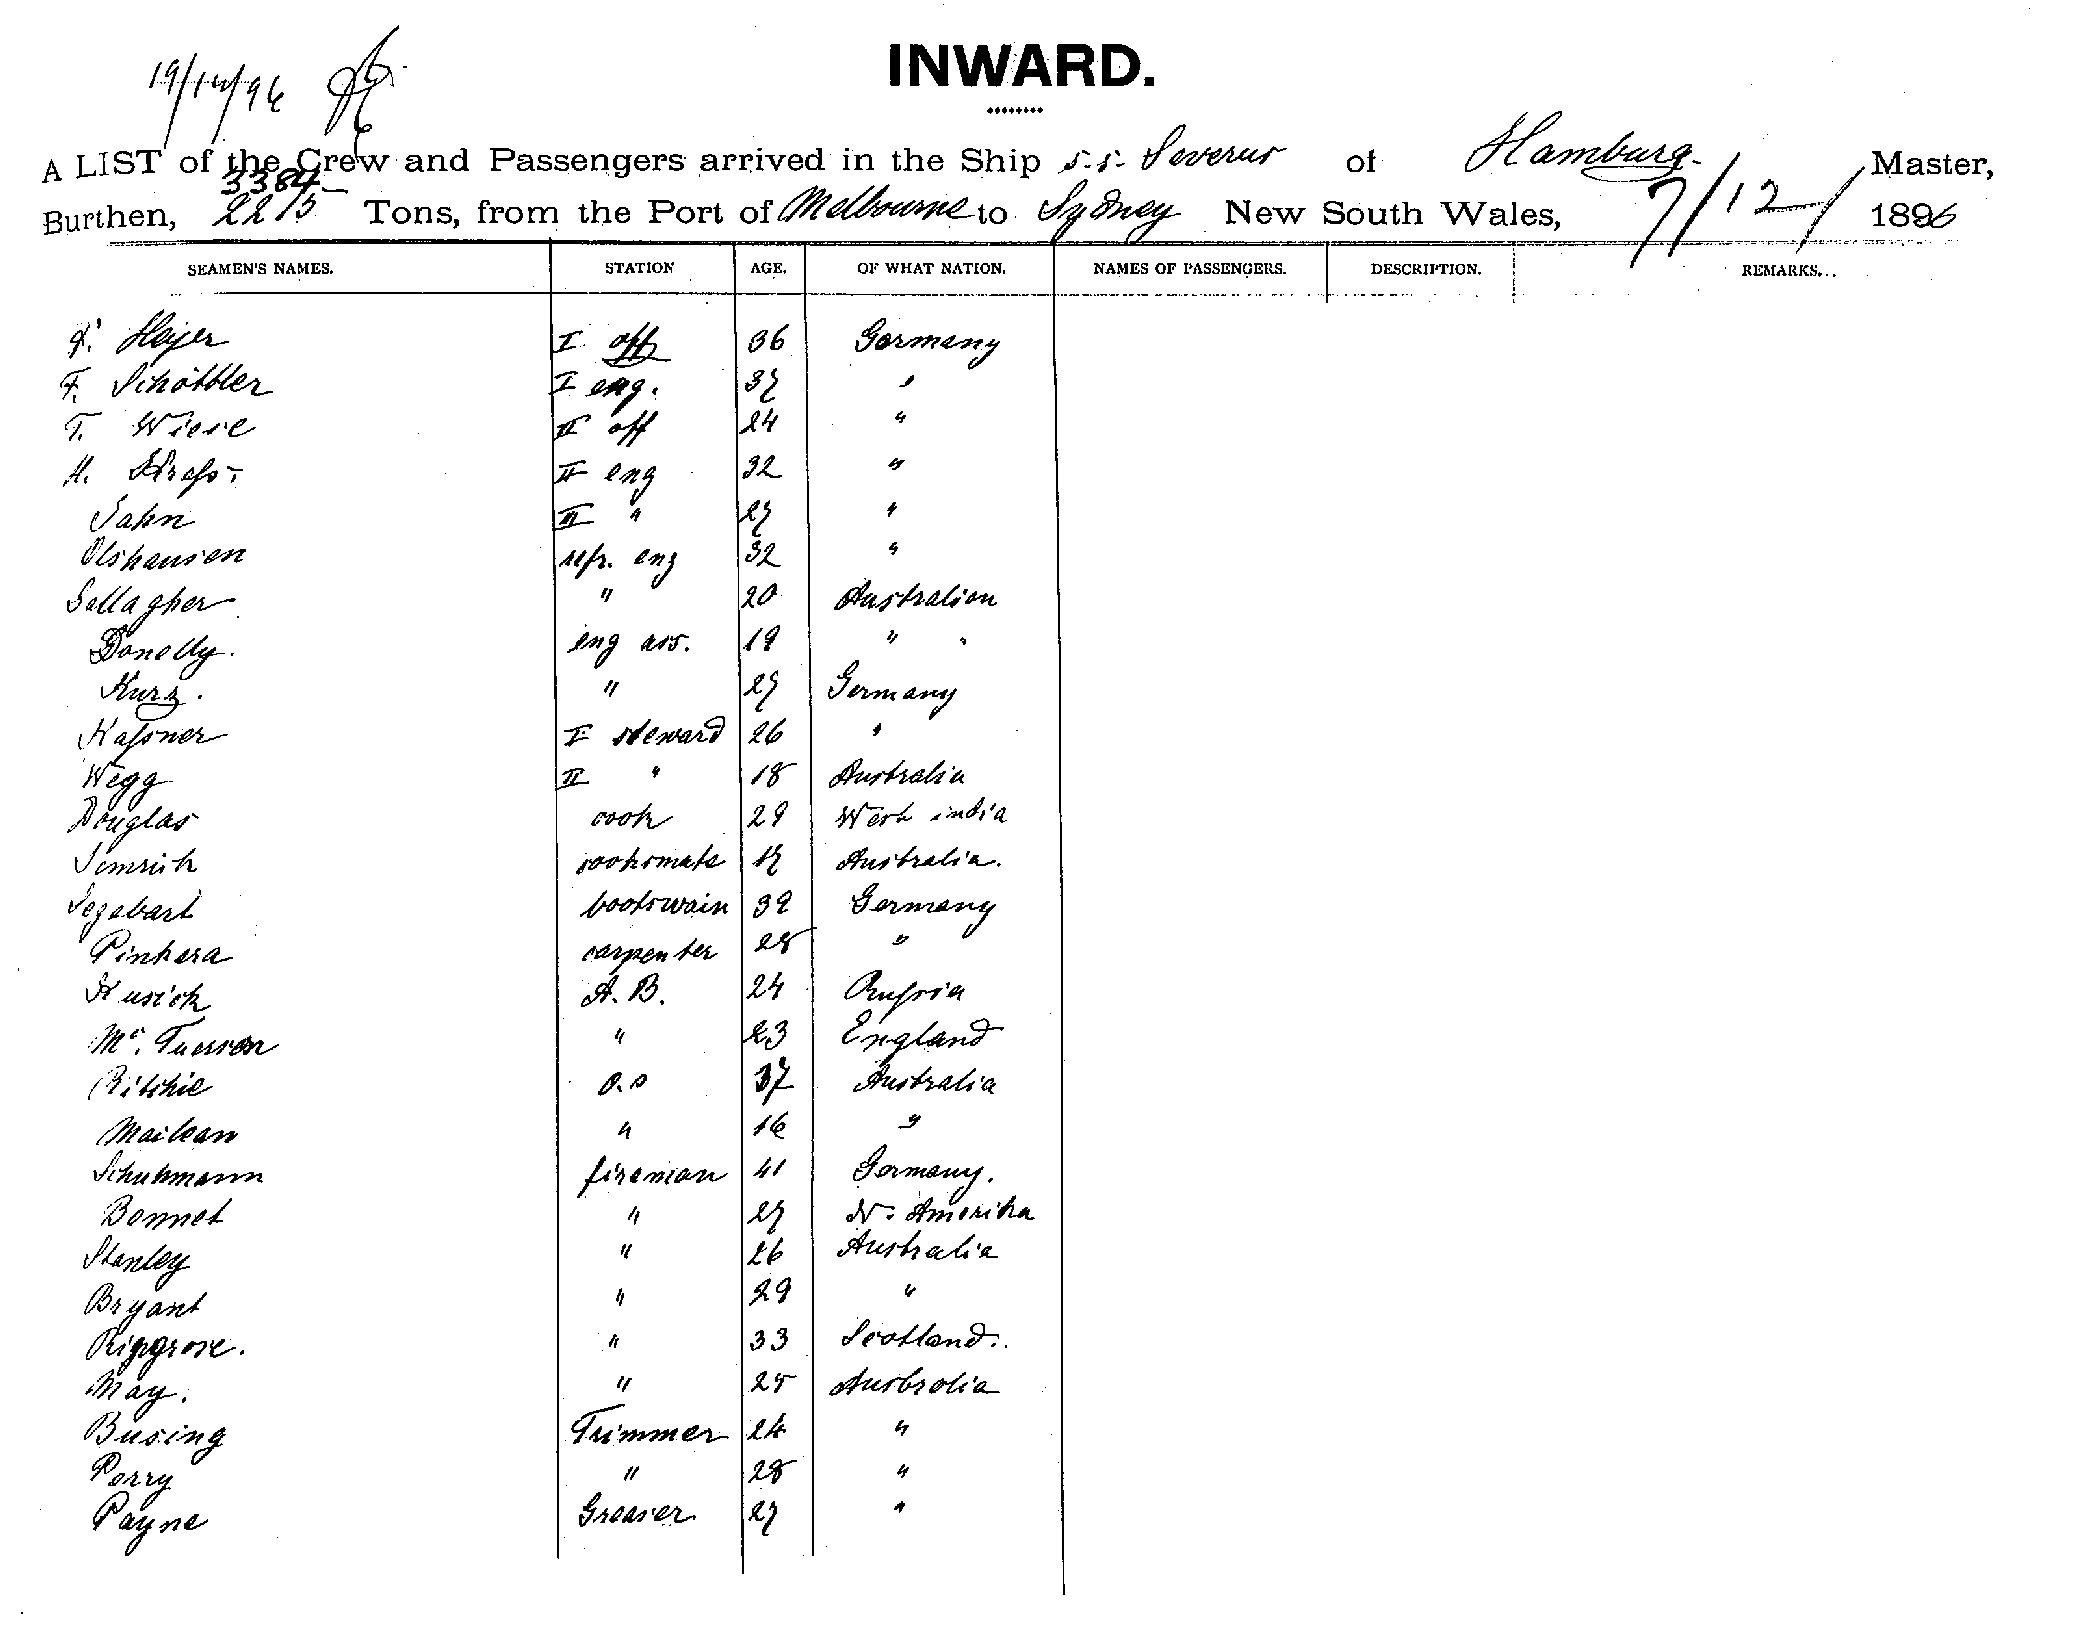 INWARD.
19/12/96
A LIST of the Crew and Passengers arrived in the Ship s.s. Severus of Hamburg. Master,
3384
Burthen, 2215 Tons, from the Port of Melbourne to Sydney New South Wales, 7/12/ 1896
SEAMEN'S NAMES. STATION AGE. OF WHAT NATION. NAMES OF PASSENGERS. DESCRIPTION. REMARKS...
Heyer I off 36 Germany
F. Schöttler I eng. 37 "
T. Wiese II off 24 "
H. II eng 32 "
Jahn III " 27 "
Olshausen refr. eng 32 "
Gallagher " 20 Australian
Donelly. eng ass. 19 " "
Kurz. " 27 Germany
Kassner I steward 26 "
Wegg II " 18 Australia
Douglas cook 29 West india
cooksmate 17 Australia.
bootswain 39 Germany
Pinkera carpenter 28 "
Kusick A.B. 24 Russia
Mc. " 23 England
Ritchie O.S 37 Australia
Maclean " 16 "
Schuhmann fireman 41 Germany.
Bonnet " 27 N. Amerika
Stanley " 26 Australia
Bryant " 29 "
Ringgrose. " 33 Scotland.
May. " 25 Australia
Busing Trimmer 24 "
Perry " 28 "
Payne Greaser 27 "